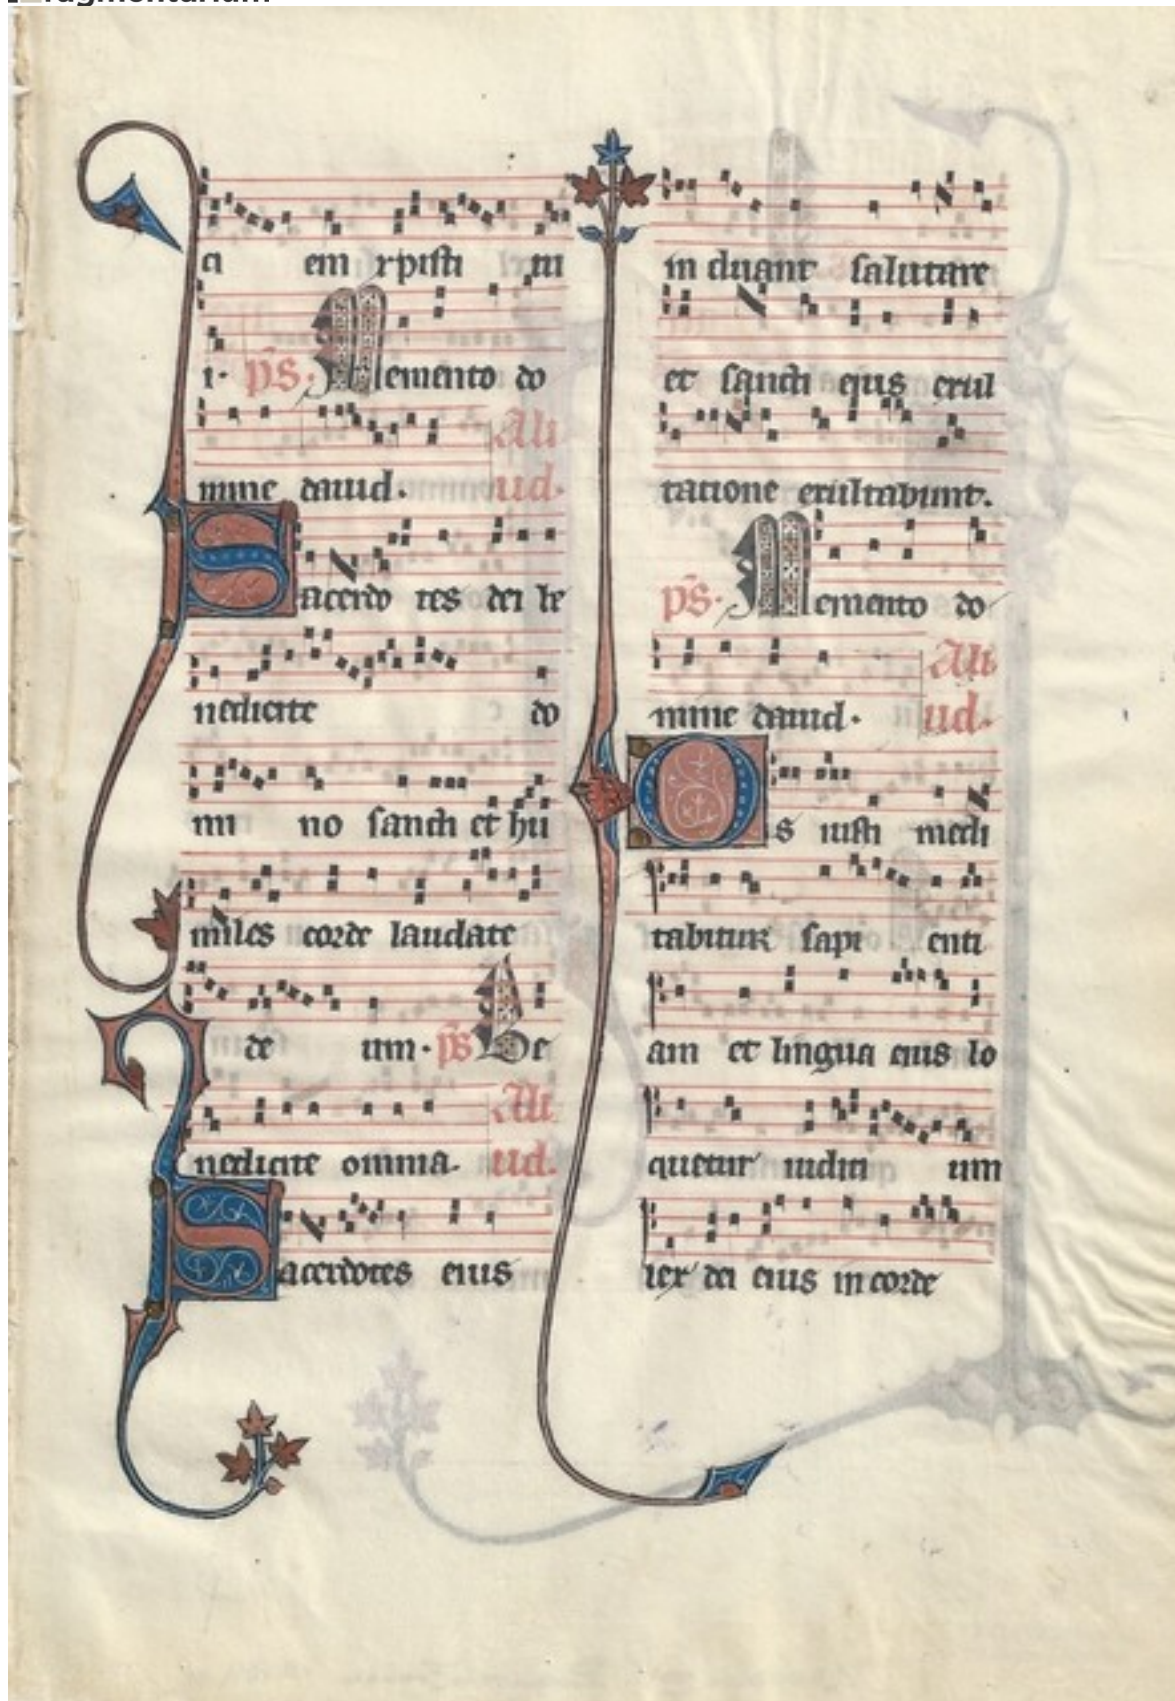 ragmentarium
ci em xpisti tu
i. ps. Memento do
mine dauid. Ali
ud.
Sacerdo tes dei be
nedicite do
mi no sancti et hu
miles corde laudate
de um. ps Be
nedicite omnia. Ali
ud.
Sacerdotes eius
induant salutare
et sancti eius exul
tatione exultabunt.
ps. Memento do
mine dauid. Ali
ud.
Os iusti medi
tabitur sapi enti
am et lingua eius lo
quetur iudici um
lex dei eius in corde